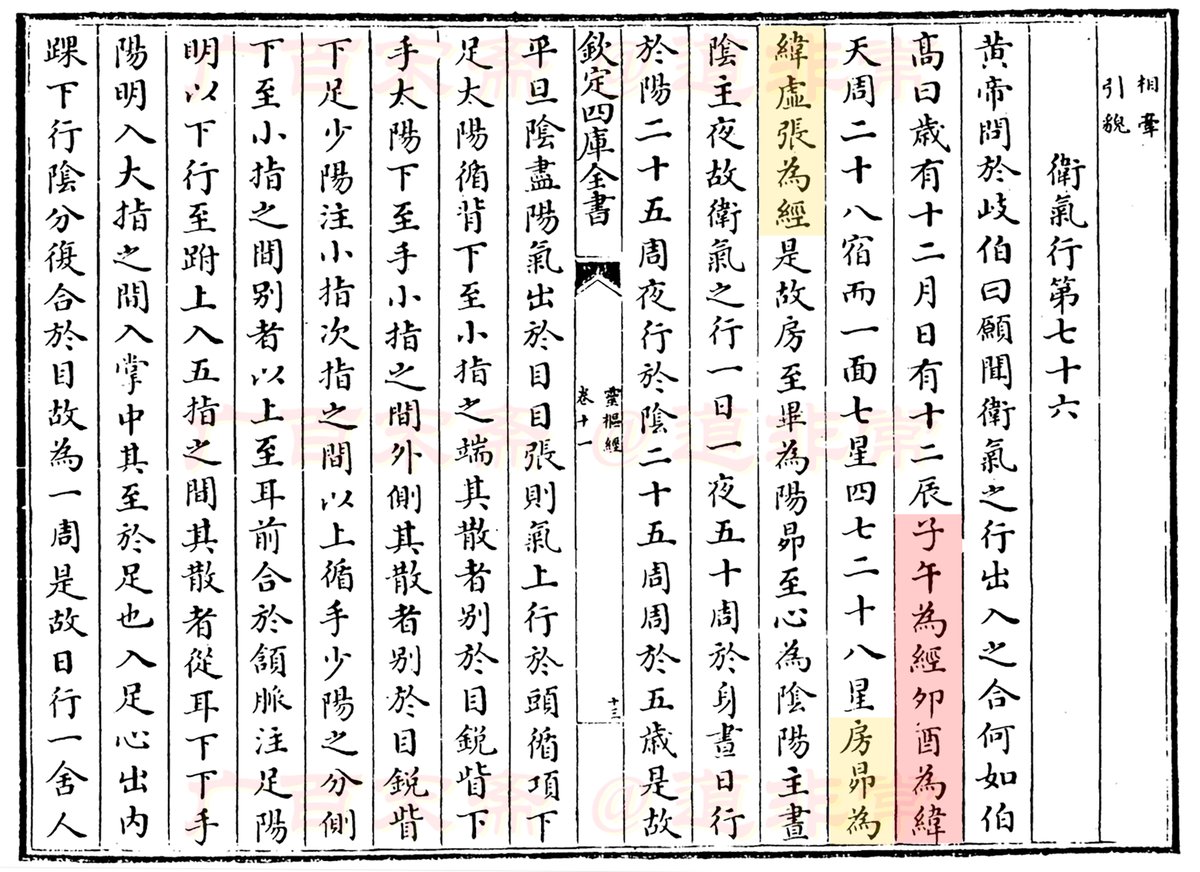 相牽
引貌
衛氣行第七十六
黄帝問於岐伯曰願聞衛氣之行出入之合何如伯
髙曰歳有十二月日有十二辰子午為經卯酉為緯
天周二十八宿而一面七星四七二十八星房昴為
緯虚張為經是故房至畢為陽昴至心為陰陽主晝
陰主夜故衛氣之行一日一夜五十周於身晝日行
於陽二十五周夜行於陰二十五周周於五歳是故
欽定四庫全書
靈樞經
卷十一
十三
平旦陰盡陽氣出於目目張則氣上行於頭循項下
足太陽循背下至小指之端其散者别於目鋭眥下
手太陽下至手小指之間外側其散者别於目鋭眥
下足少陽注小指次指之間以上循手少陽之分側
下至小指之間别者以上至耳前合於頷脈注足陽
明以下行至跗上入五指之間其散者從耳下下手
陽明入大指之間入掌中其至於足也入足心出内
踝下行陰分復合於目故為一周是故日行一舍人
广百宋斋 @道非常
广百宋斋 @道非常
广百宋斋 @道非常